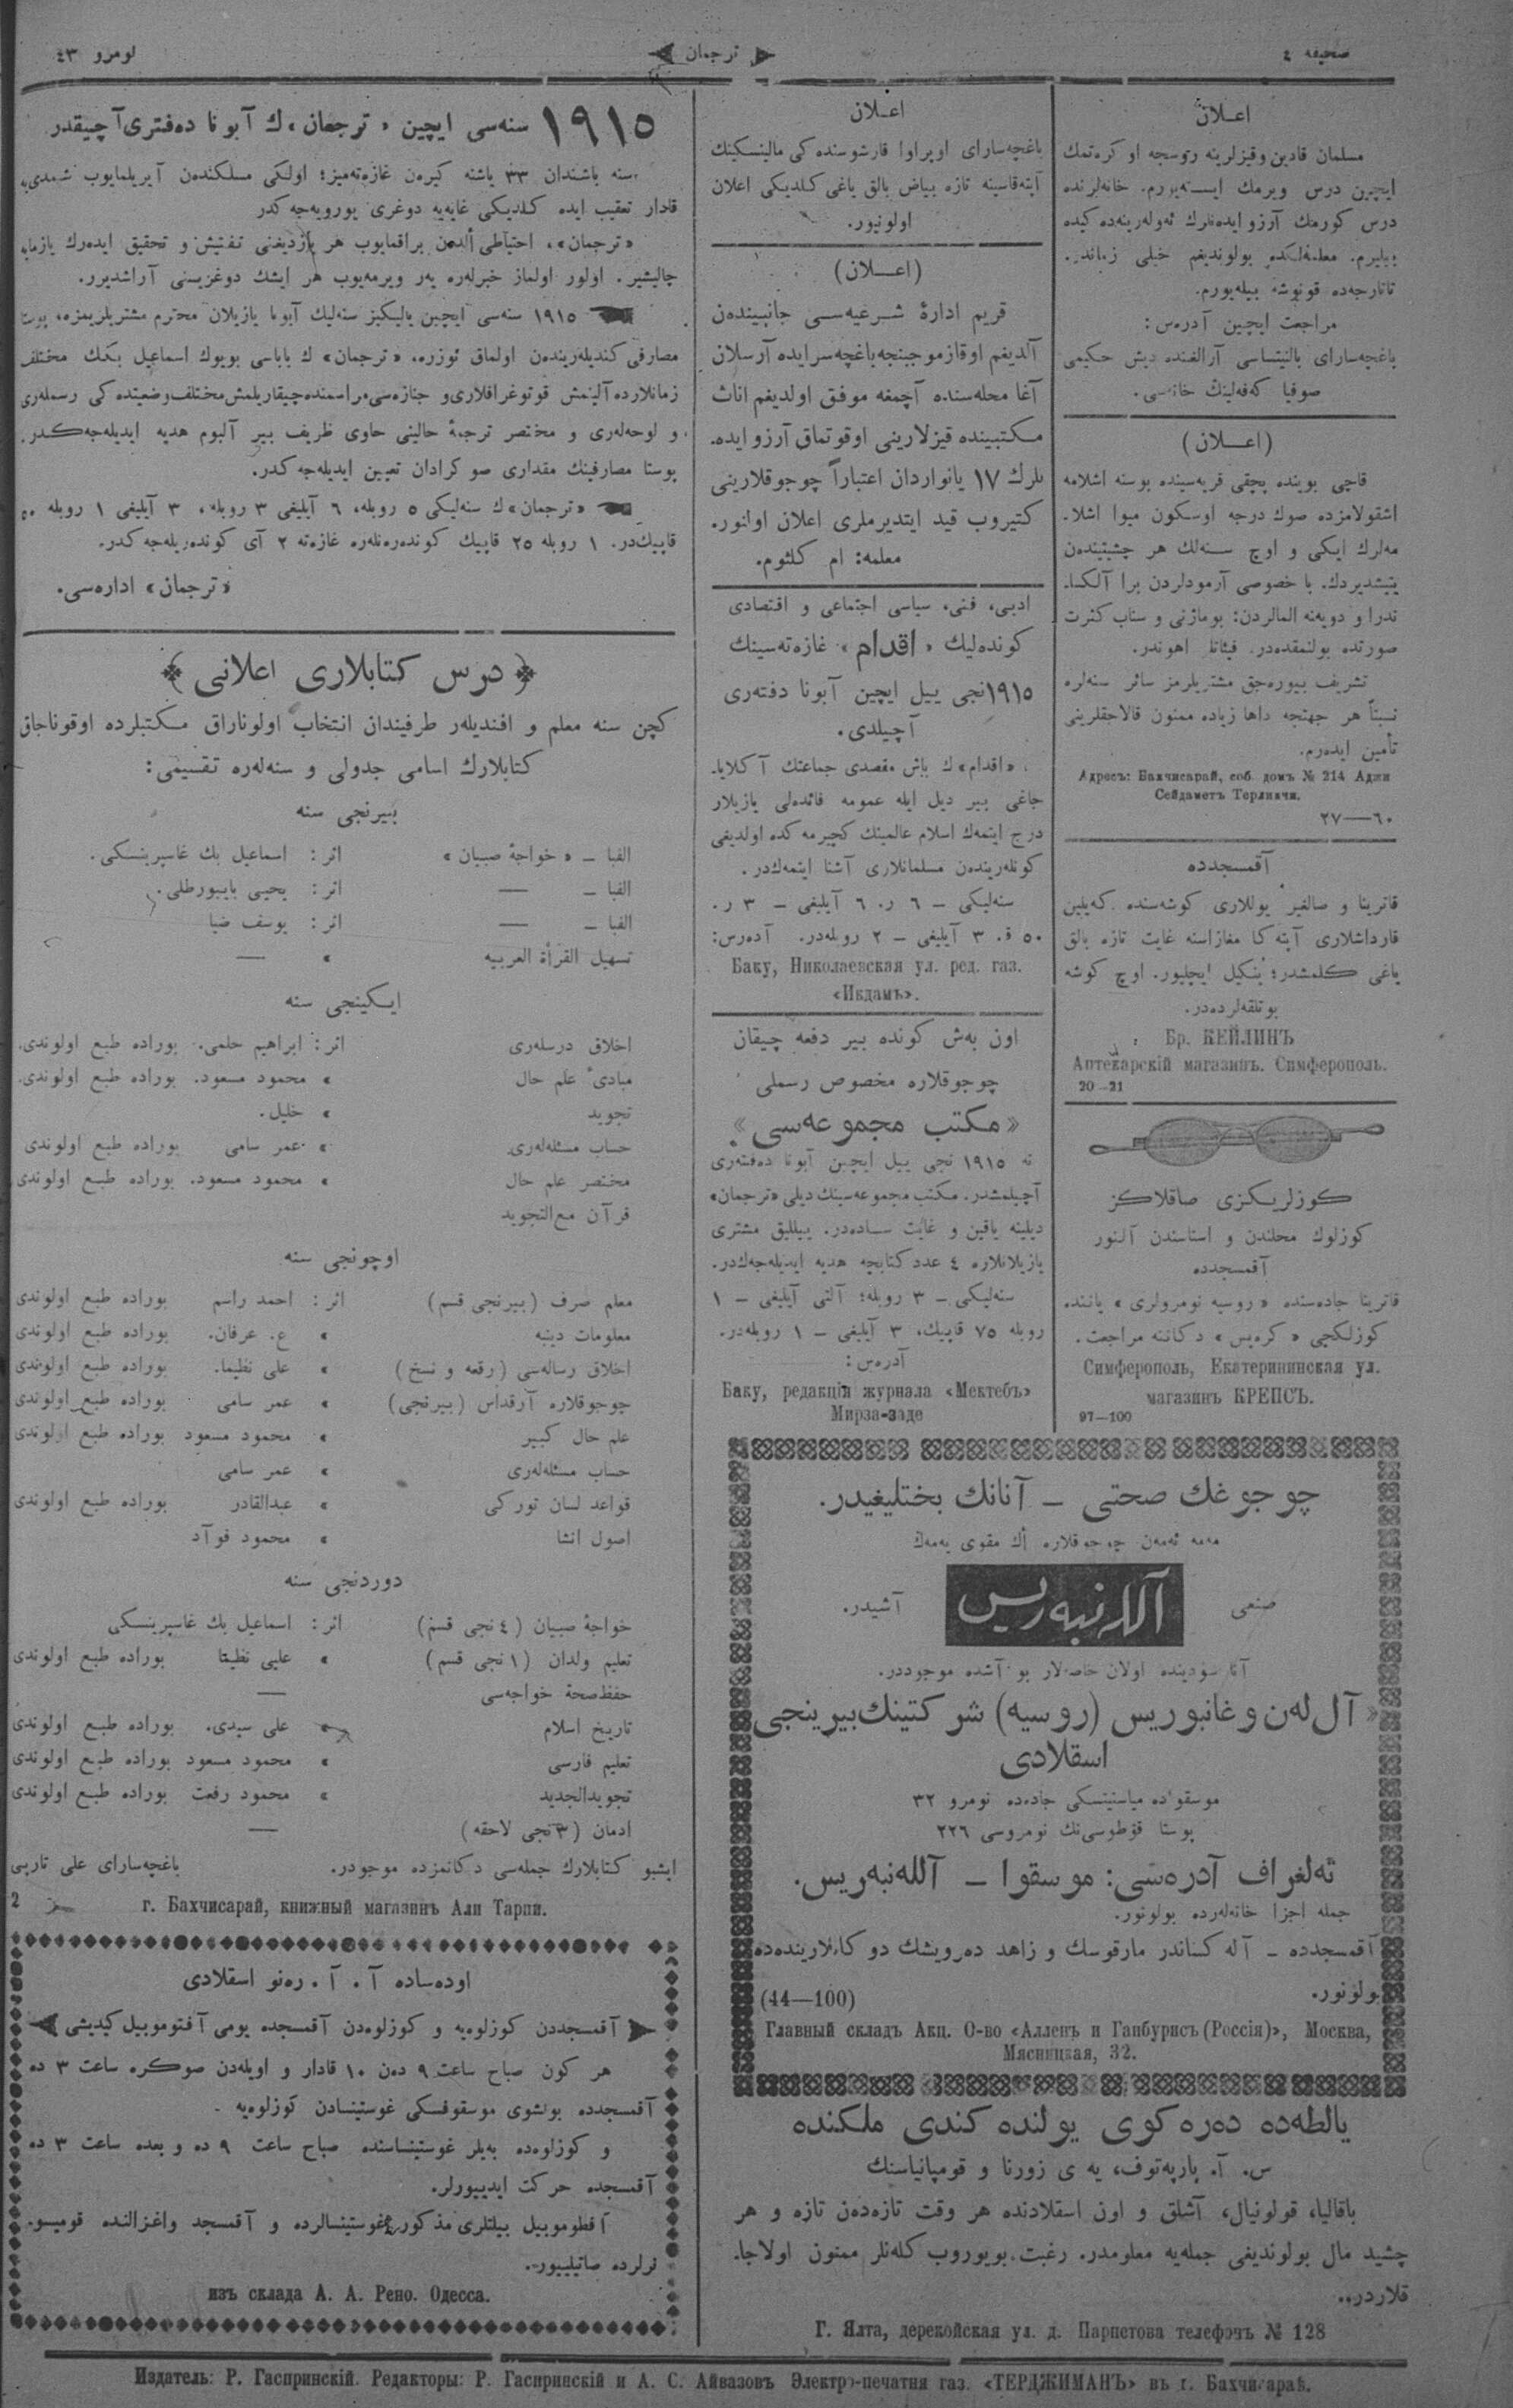 صحیفه ٤
ترجمان
نومرو ٤٣
اعـلان
مسلمان قادین وقیزلرینه روسجه اوکرەتمك
ایچین درس ویرمك ایستەیورم. خانەلرنده
درس کورمك آرزو ایدەنلرك ئەولەرینەده کیده
بیلیرم. معلمەلکده بولوندیغم خیلی زماندر.
تاتارجەده قونوشه بیلەیورم.
مراجعت ایچین آدرەس:
باغچەسارای بالنیتساسی آرالغنده دیش حکیمی
صوفیا کەفەلینڭ خانەسی.
(اعـــلان)
قاچی بوینده قریەسینده بوسنه اشلامه
اشقولامزده صوك درجه اوسکون میوا اشلا.
مەلرك ایکی و اوچ سـنەلك هر چشیتیندەن
یتیشدیردك. با خصوصی آرمودلردن برا آلکسا.
ندرا و دویەنه المالردن: بومازنی و سناب کثرت
صورتده بولنمقدەدر. فیئاتلر اهوندر.
تشریف بیورەجق مشتریلرمز سائر سنەلره
نسبتاً هر جهتجه داها زیاده ممنون قالاجقلرینی
تأمین ایدەرم.
Адресъ: Бахчисарай, соб. домъ № 214 Аджи
Сейдаметъ Терликчи.
٦٠—٢٧
آقمسجدده
قاترینا و صالغیر یوللاری کوشەسنده کەیلین
قارداشلاری آپتەکا مغازاسنه غایت تازه بالق
یاغی کلمشدر؛ یُنکیل ایچلیور. اوچ کوشه
بوتلقەلردەدر.
Бр. КЕЙЛИНЪ
Аптекарскій магазинъ. Симферополь.
20—21
کوزلریکزی صاقلاکز
کوزلوك محلندن و استاسندن آلنور
آقمسجدده
قاترینا جادەسنده « روسیه نومرولری » یاننده
کوزلکچی « کرەپس » دکاننه مراجعت.
Симферополь, Екатерининская ул.
магазинъ КРЕПСЪ.
97—100
اعـلان
باغچەسارای اوپراوا قارشوسنده کی مالینسکینك
آپتەقاسینه تازه بیاض بالق یاغی کلدیکی اعلان
اولونیور.
(اعـــلان)
قریم ادارۀ شـرعیەسـی جانبیندەن
آلدیغم اوقازموجبنجه باغچەسرایده آرسلان
آغا محلەسنده آچمغه موفق اولدیغم اناث
مکتبینده قیزلارینی اوقوتماق آرزو ایده.
نلرك ١٧ یانواردان اعتباراً چوجوقلارینی
کتیروب قید ایتدیرملری اعلان اولنور.
معلمه: ام کلثوم.
ادبی، فنی، سیاسی اجتماعی و اقتصادی
کوندەلیك « اقدام » غازەتەسینك
١٩١٥نجی ییل ایچین آبونا دفتەری
آچیلدی.
« اقدام» ك باش مقصدی جماعتك آکلایا.
جاغی بیر دیل ایله عمومه فائدەلی یازیلار
درج ایتمەك اسلام عالمینك کچیرمەکده اولدیغی
کونلەریندەن مسلمانلاری آشنا ایتمەكدر.
سنەلیکی — ٦ ر. ٦ آیلیغی — ٣ ر.
٥٠ ق. ٣ آیلیغی — ٢ روبلەدر. آدەرس:
Баку, Николаевская ул. ред. газ.
«Икдамъ».
اون بەش کونده بیر دفعه چیقان
چوجوقلاره مخصوص رسملی
«مکتب مجموعەسی»
نه ١٩١٥ نجی ییل ایچین آبونا دەفتەری
آچیلمشدر. مکتب مجموعەسینك دیلی «ترجمان»
دیلینه یاقین و غایت سـادەدر. ییللیق مشتری
یازیلانلاره ٤ عدد کتابچه هدیه ایدیلەجەكدر.
سنەلیکی — ٣ روبله؛ آلتی آیلیغی — ١
روبله ٧٥ قاپیك، ٣ آیلیغی — ١ روبلەدر.
آدرەس:
Баку, редакція журнала «Мектебъ»
Мирза-заде
چوجوغك صحتی — آنانك بختلیغیدر.
مەمه ئەمەن چوجوقلاره أك مقوی یەمەك
صنعی آللەنبەریس آشیدر.
آنا سودینده اولان خاصەلار بو آشده موجوددر.
« آل لەن وغانبوریس (روسیه) شرکتینك بیرینجی
اسقلادی
موسقوادە میاسنیتسکی جادەده نومرو ٣٢
پوستا قوطوسی نك نومروسی ٢٢٦
تەلغراف آدرەسی: موسقوا — آللەنبەریس.
جمله اجزا خانەلەرده بولونور.
آقمسجدده — آلەکساندر مارقوسك و زاهد دەرویشك دوکانلاریندەده
بولونور.
(44—100)
Главный складъ Акц. О-во «Алленъ и Ганбурисъ (Россія)», Москва,
Мясницкая, 32.
یالطەده دەرەکوی یولنده کندی ملکنده
س. آ. پارپەتوف، یه ی زورنا و قومپانیاسنك
باقالیا، قولونیال، آشلق و اون اسقلادنده هر وقت تازەدەن تازه و هر
چشید مال بولوندیغی جملەیه معلومدر. رغبت بویوروب کلەنلر ممنون اولاجا.
قلاردر..
Г. Ялта, дерекойская ул. д. Парпетова телефонъ № 128
١٩١٥ سنەسی ایچین « ترجمان » ك آبونا دەفتری آچیقدر
سنه باشندان ٣٣ یاشنه کیرەن غازەتەمیز؛ اولکی مسلکندەن آیریلمایوب شمدی یه
قادار تعقیب ایده کلدیکی غایەیه دوغری یورویەجەکدر
«ترجمان»، احتیاطی ألدەن براقمایوب هر یازدیغنی تفتیش و تحقیق ایدەرك یازمایه
چالیشیر. اولور اولماز خبرلەره یەر ویرمەیوب هر ایشك دوغریسنی آراشدیرر.
١٩١٥ سنەسی ایچین یالیکیز سنەلیك آبونا یازیلان محترم مشتریلریمزه، پوستا
مصارفی کندیلەریندەن اولماق ئوزره، «ترجمان» ك باباسی بویوك اسماعیل بکك مختلف
زمانلارده آلینمش فوتوغرافلاری و جنازەسی مراسمنده چیقاریلمش مختلف وضعیتده کی رسملەری
و لوحەلەری و مختصر ترجمۀ حالینی حاوی ظریف بیر آلبوم هدیه ایدیلەجەکدر.
پوستا مصارفینك مقداری صوکرادان تعیین ایدیلەجەکدر.
«ترجمان» ك سنەلیکی ٥ روبله، ٦ آیلیغی ٣ روبله، ٣ آیلیغی ١ روبله ٥٠
قاپیكدر. ١ روبله ٢٥ قاپیك کوندەرەنلەره غازەته ٢ آی کوندەریلەجەکدر.
«ترجمان» ادارەسی.
درس کتابلاری اعلانی
کچن سنه معلم و افندیلەر طرفیندان انتخاب اولوناراق مکتبلرده اوقوناجاق
کتابلارك اسامی جدولی و سنەلەره تقسیمی:
بیرنجی سنه
الفبا — « خواجۀ صبیان » اثر: اسماعیل بك غاسپرینسکی.
الفبا — — اثر: یحیی بایبورطلی.
الفبا — — اثر: یوسف ضیا
تسهیل القرأة العربیه » —
ایکینجی سنه
اخلاق درسلەری اثر: ابراهیم حلمی. بوراده طبع اولوندی.
مبادئ علم حال » محمود مسعود. بوراده طبع اولوندی.
تجوید » خلیل.
حساب مسئلەلەری » عمر سامی بوراده طبع اولوندی
مختصر علم حال » محمود مسعود. بوراده طبع اولوندی
قرآن مع التجوید
اوچونجی سنه
معلم صرف (بیرنجی قسم) اثر: احمد راسم بوراده طبع اولوندی
معلومات دینیه » ع. عرفان. بوراده طبع اولوندی
اخلاق رسالەسی (رقعه و نسخ) » علی نظیما. بوراده طبع اولوندی
چوجوقلاره آرقداش (بیرنجی) » عمر سامی بوراده طبع اولوندی
علم حال کبیر » محمود مسعود بوراده طبع اولوندی
حساب مسئلەلەری » عمر سامی
قواعد لسان تورکی » عبدالقادر بوراده طبع اولوندی
اصول انشا » محمود فوآد
دوردنجی سنه
خواجۀ صبیان (٤ نجی قسم) اثر: اسماعیل بك غاسپرینسکی
تعلیم ولدان (١ نجی قسم) » علیی نظیما بوراده طبع اولوندی
حفظ صحة خواجەسی —
تاریخ اسلام » علی سیدی. بوراده طبع اولوندی
تعلیم فارسی » محمود مسعود بوراده طبع اولوندی
تجوید الجدید » محمود رفعت بوراده طبع اولوندی
ادمان (٣ نجی لاحقه) —
ایشبو کتابلارك جملەسی دکانمزده موجودر. باغچەسارای علی تارپی
г. Бахчисарай, книжный магазинъ Али Тарпи. 2
اودەساده آ. آ. رەنو اسقلادی
آقمسجددن کوزلوەیه و کوزلوەدن آقمسجده یومی آفتوموبیل کیدیشی
هر کون صباح ساعت ٩ دەن ١٠ قادار و اویلەدن صوکره ساعت ٣ ده
آقمسجدده بولشوی موسقوفسکی غوستینسادن کوزلوەیه
و کوزلوەده بەیلر غوستینساسنده صباح ساعت ٩ ده و بعده ساعت ٣ ده
آقمسجده حرکت ایدییورلر.
آفطوموبیل بیلتلری مذکور غوستینسالرده و آقمسجد واغزالنده قومیسو.
نرلرده صاتیلییور.
изъ склада А. А. Рено. Одесса.
Издатель: Р. Гаспринскій. Редакторы: Р. Гаспринскій и А. С. Айвазовъ Электро-печатня газ. «ТЕРДЖИМАНЪ» въ г. Бахчисараѣ.